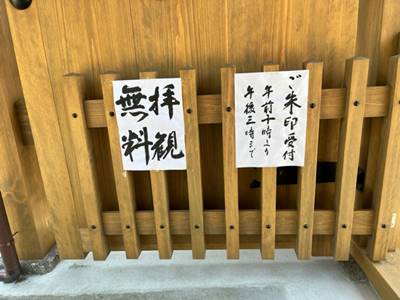 拝観
無料
ご朱印受付
午前十時より
午後三時まで